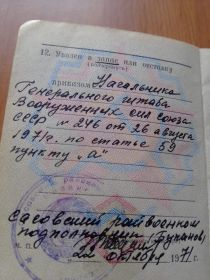 12. Уволен в запас или отставку
(подчеркнуть)
приказом Начальника
Генерального штаба
Вооруженных сил Союза
ССР № 246 от 26 августа
1971г. по статье 59
пункту „а“
Сасовский райвоенком
подполковник
М. П.
22 октября 1971 г.